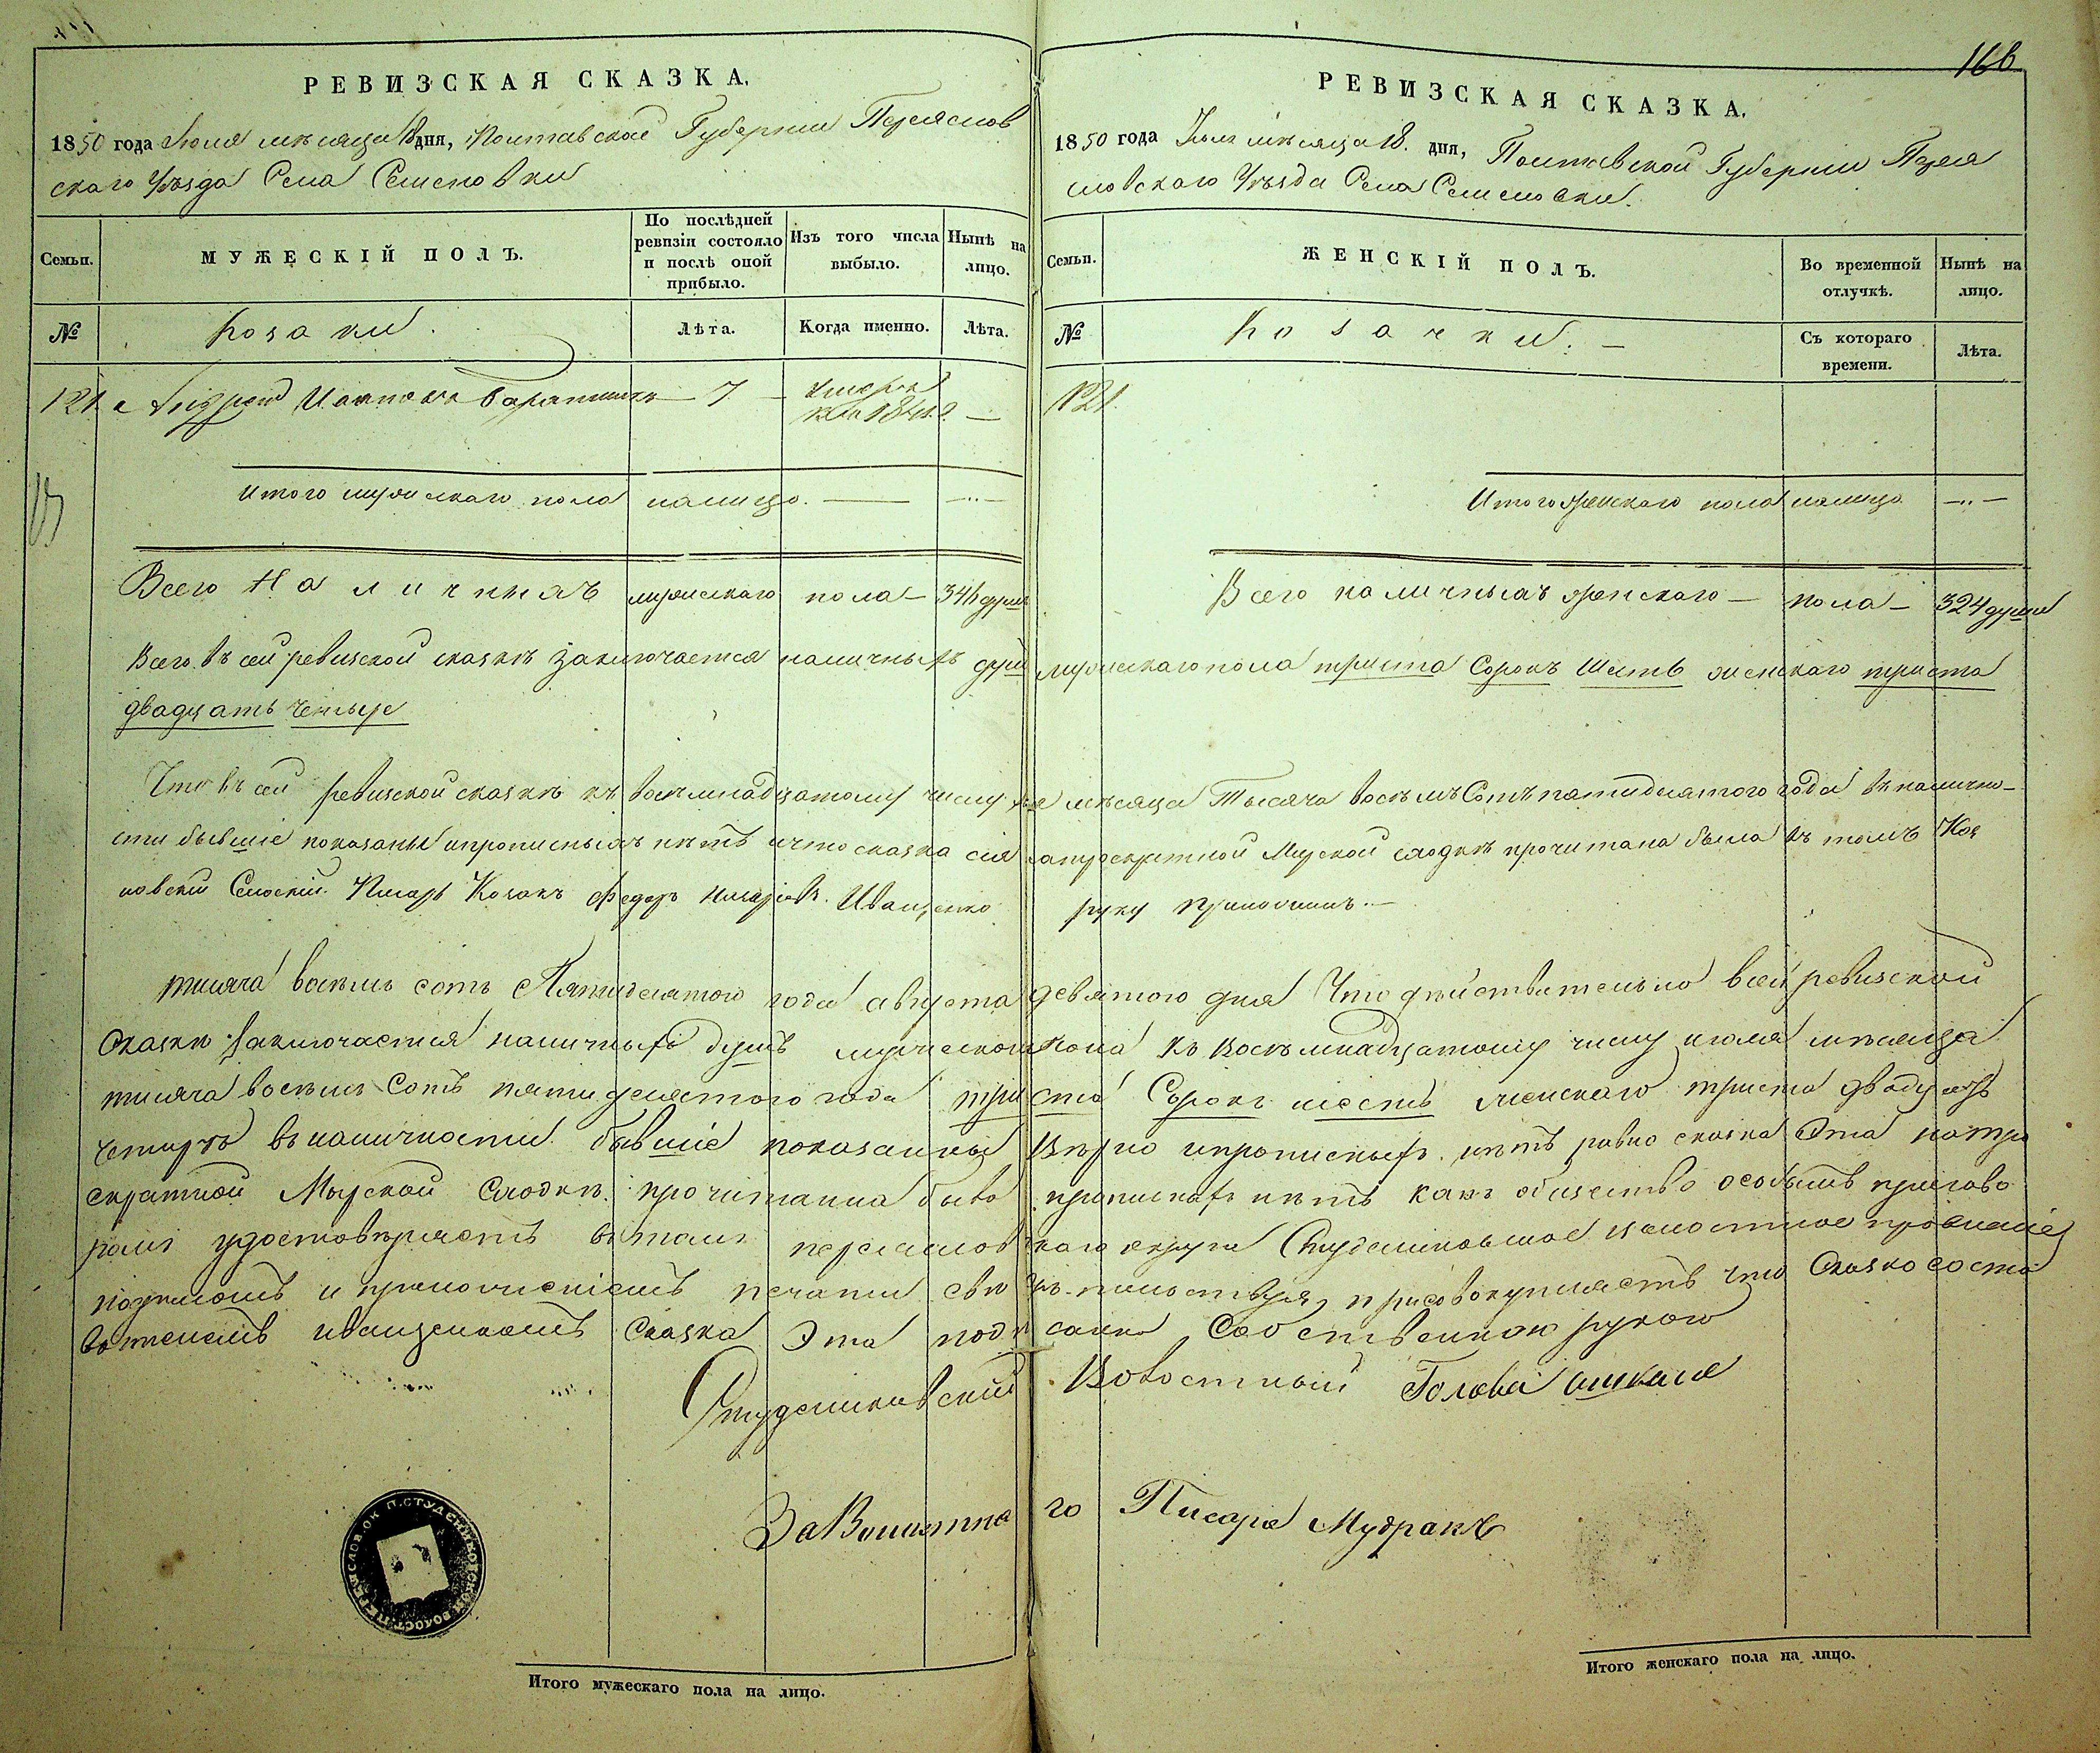 166
РЕВИЗСКАЯ СКАЗКА.
1850 года Іюля мѣсяца 18 дня, Полтавской Губерніи Переяслов
скаго Уѣзда Села Семеновки
Семьи.
МУЖЕСКІЙ ПОЛЪ.
По послѣдней ревизіи состояло и послѣ оной прибыло.
Изъ того числа выбыло.
Нынѣ на лицо.
№
Козаки.
Лѣта.
Когда именно.
Лѣта.
121
Андрей 7
Итого мужескаго пола налицо. — —„—
Всего Наличныхъ мужескаго пола — 346 душъ
РЕВИЗСКАЯ СКАЗКА.
1850 года Іюля мѣсяца 18. дня, Полтавской Губерніи Перея
словскаго Уѣзда Села Семеновки.
Семьи.
ЖЕНСКІЙ ПОЛЪ.
Во временной отлучкѣ.
Нынѣ на лицо.
№
Козачки. —
Съ котораго времени.
Лѣта.
121.
Итого женскаго пола налицо —„—
Всего наличныхъ женскаго — пола — 324 души
Всего въ сей ревизской сказкѣ заключается наличныхъ душъ мужескаго пола триста Сорокъ Шесть женскаго триста
двадцать четыре
Что въ сей ревизской сказкѣ къ восемнадцатому числу мѣсяца Тысяча восемъ Сотъ пятидесятого года въ налично-
сти бывшіе показаны и прописныхъ нѣтъ и что сказка сія на Мірской сходкѣ прочитана была въ томъ
Сельскій Писарь Козакъ Федоръ Иващенко руку приложилъ. —
тисяча восемъ сотъ Пятидесятого года августа девятого дня Что дѣйствительно въ сей ревизской
сказки заключается наличныхъ душъ мужеского пола къ восемнадцатому числу июля мѣсяца
тисяча восемъ Сотъ пятидесятого года триста Сорокъ шесть женскаго триста двадцать
четыре въ наличности бывшіе показанны Вѣрно и прописныхъ нѣтъ равно сказка Эта на три
скратной Мырской Сходкѣ прочитанна было прописнахъ нѣтъ какъ общество особымъ пригово
ромъ удостовѣряетъ въ томъ переяслов скаго округа Студениковское волостное правленіе
подписомъ и приложеніемъ печати присовокупляетъ что Сказка соста
вленемъ иващенкомъ Сказка Эта подписанна Собственною рукою
Студениковский Волостный Голова
За Волостнаго Писаря Мудракъ
Итого мужескаго пола на лицо.
Итого женскаго пола на лицо.